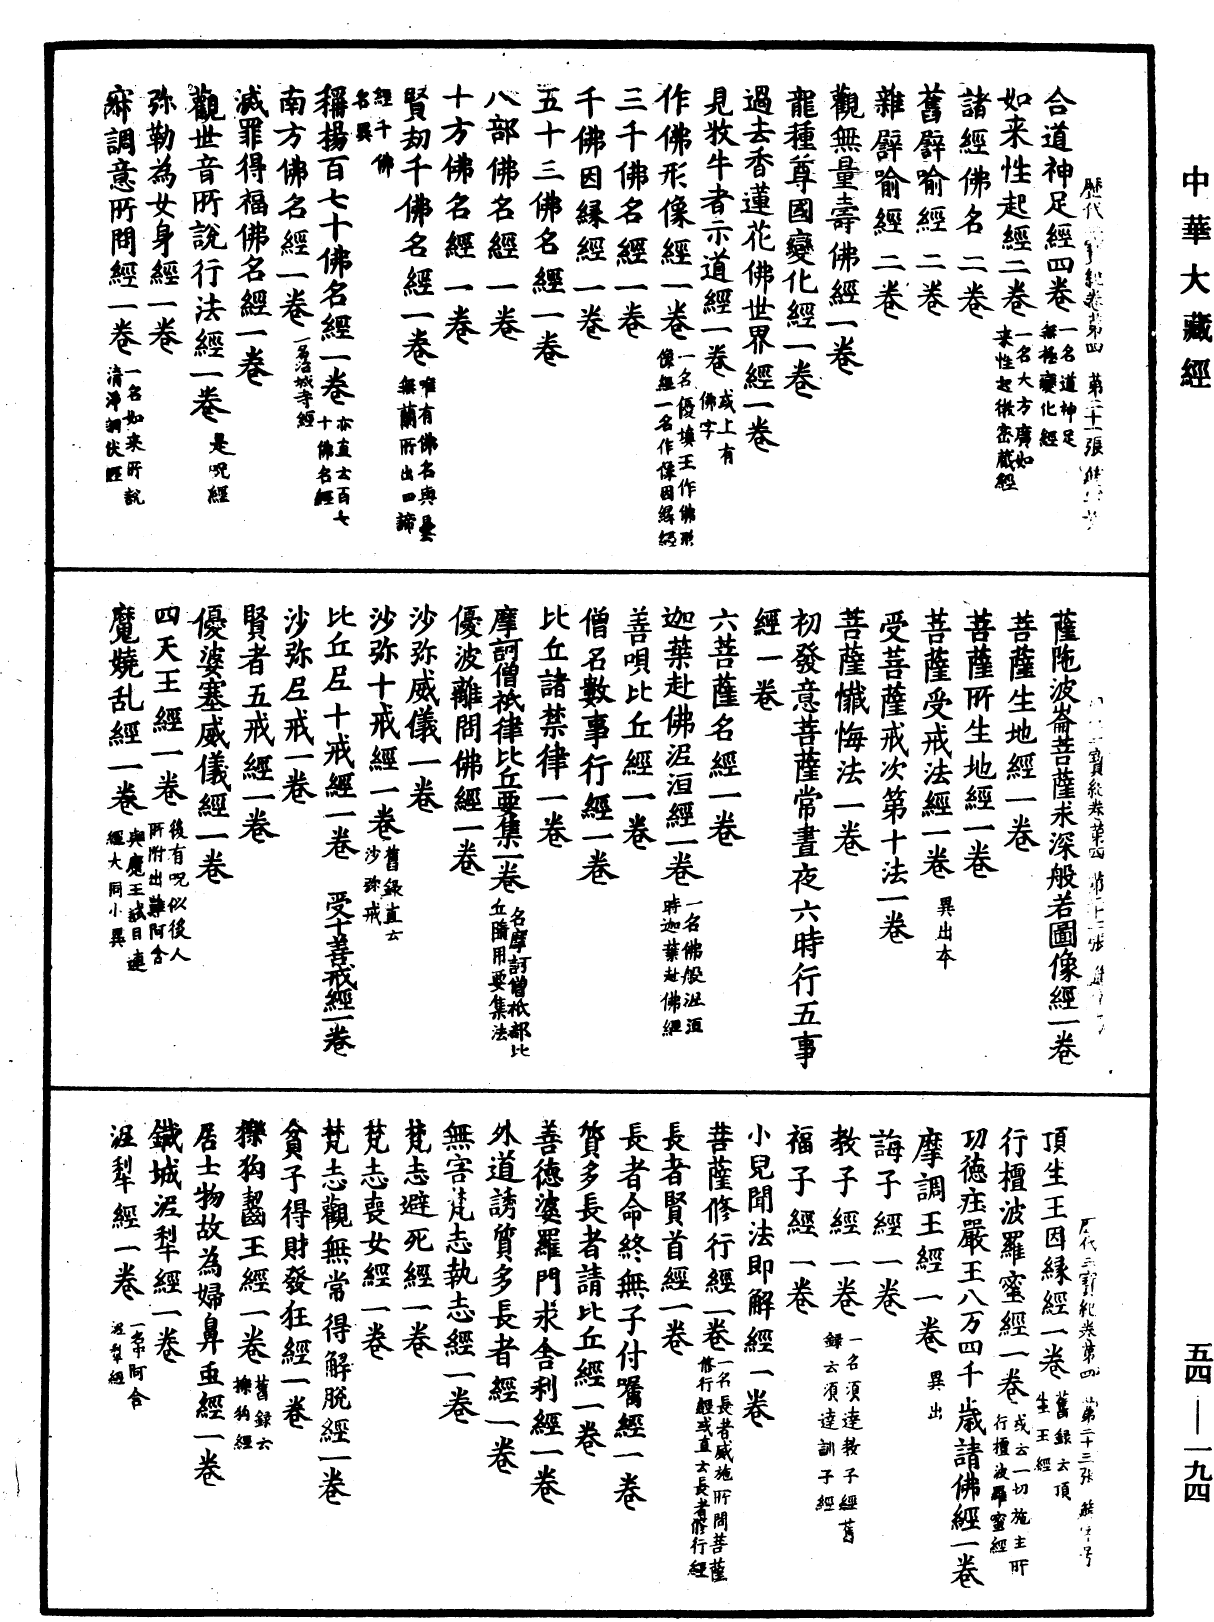 中華大藏經
歷代三寶紀卷第四 第二十一張
合道神足經四卷 一名道神足無極變化經
如来性起經二卷 一名大方廣如来性起微密藏經
諸經佛名二卷
舊譬喻經二卷
雜譬喻經二卷
觀無量壽佛經一卷
龍種尊國變化經一卷
過去香蓮花佛世界經一卷
見牧牛者示道經一卷 或上有佛字
作佛形像經一卷 一名優填王作佛形像經一名作像因緣經
三千佛名經一卷
千佛因緣經一卷
五十三佛名經一卷
八部佛名經一卷
十方佛名經一卷
賢刼千佛名經一卷 唯有佛名與曇無蘭所出四諦
經千佛名異
稱揚百七十佛名經一卷 亦直云百七十佛名經
南方佛名經一卷 一名治城寺經
滅罪得福佛名經一卷
觀世音所說行法經一卷 是呪經
弥勒為女身經一卷
寂調意所問經一卷 一名如来所說清淨調伏經
三寶紀卷第四
薩陁波崙菩薩求深般若圖像經一卷
菩薩生地經一卷
菩薩所生地經一卷
菩薩受戒法經一卷 異出本
受菩薩戒次第十法一卷
菩薩懺悔法一卷
初發意菩薩常晝夜六時行五事
經一卷
六菩薩名經一卷
迦葉赴佛泥洹經一卷 一名佛般泥洹時迦葉赴佛經
善唄比丘經一卷
僧名數事行經一卷
比丘諸禁律一卷
摩訶僧祇律比丘要集一卷 名摩訶僧祇部比丘隨用要集法
優波離問佛經一卷
沙弥威儀一卷
沙弥十戒經一卷 舊録直云沙弥戒
比丘尼十戒經一卷 受十善戒經一卷
沙弥尼戒一卷
賢者五戒經一卷
優婆塞威儀經一卷
四天王經一卷 後有呪似後人所附出雜阿含
魔嬈乱經一卷 與魔王試目連經大同小異
歷代三寶紀卷第四 第二十三張
頂生王因緣經一卷 舊録云頂生王經
行檀波羅蜜經一卷 或云一切施主所行檀波羅蜜經
功德庄嚴王八万四千歲請佛經一卷
摩調王經一卷 異出
誨子經一卷
教子經一卷 一名須達教子經舊録云須達訓子經
福子經一卷
小兒聞法即解經一卷
菩薩修行經一卷 一名長者威施所問菩薩修行經或直云長者修行經
長者賢首經一卷
長者命終無子付囑經一卷
質多長者請比丘經一卷
善德婆羅門求舍利經一卷
外道誘質多長者經一卷
無害梵志執志經一卷
梵志避死經一卷
梵志喪女經一卷
梵志觀無常得解脫經一卷
貧子得財發狂經一卷
𤢴狗齧王經一卷 舊録云𤢴狗經
居士物故為婦鼻䖝經一卷
鐵城泥犂經一卷
泥犂經一卷 一名中阿含泥犂經
五四——一九四